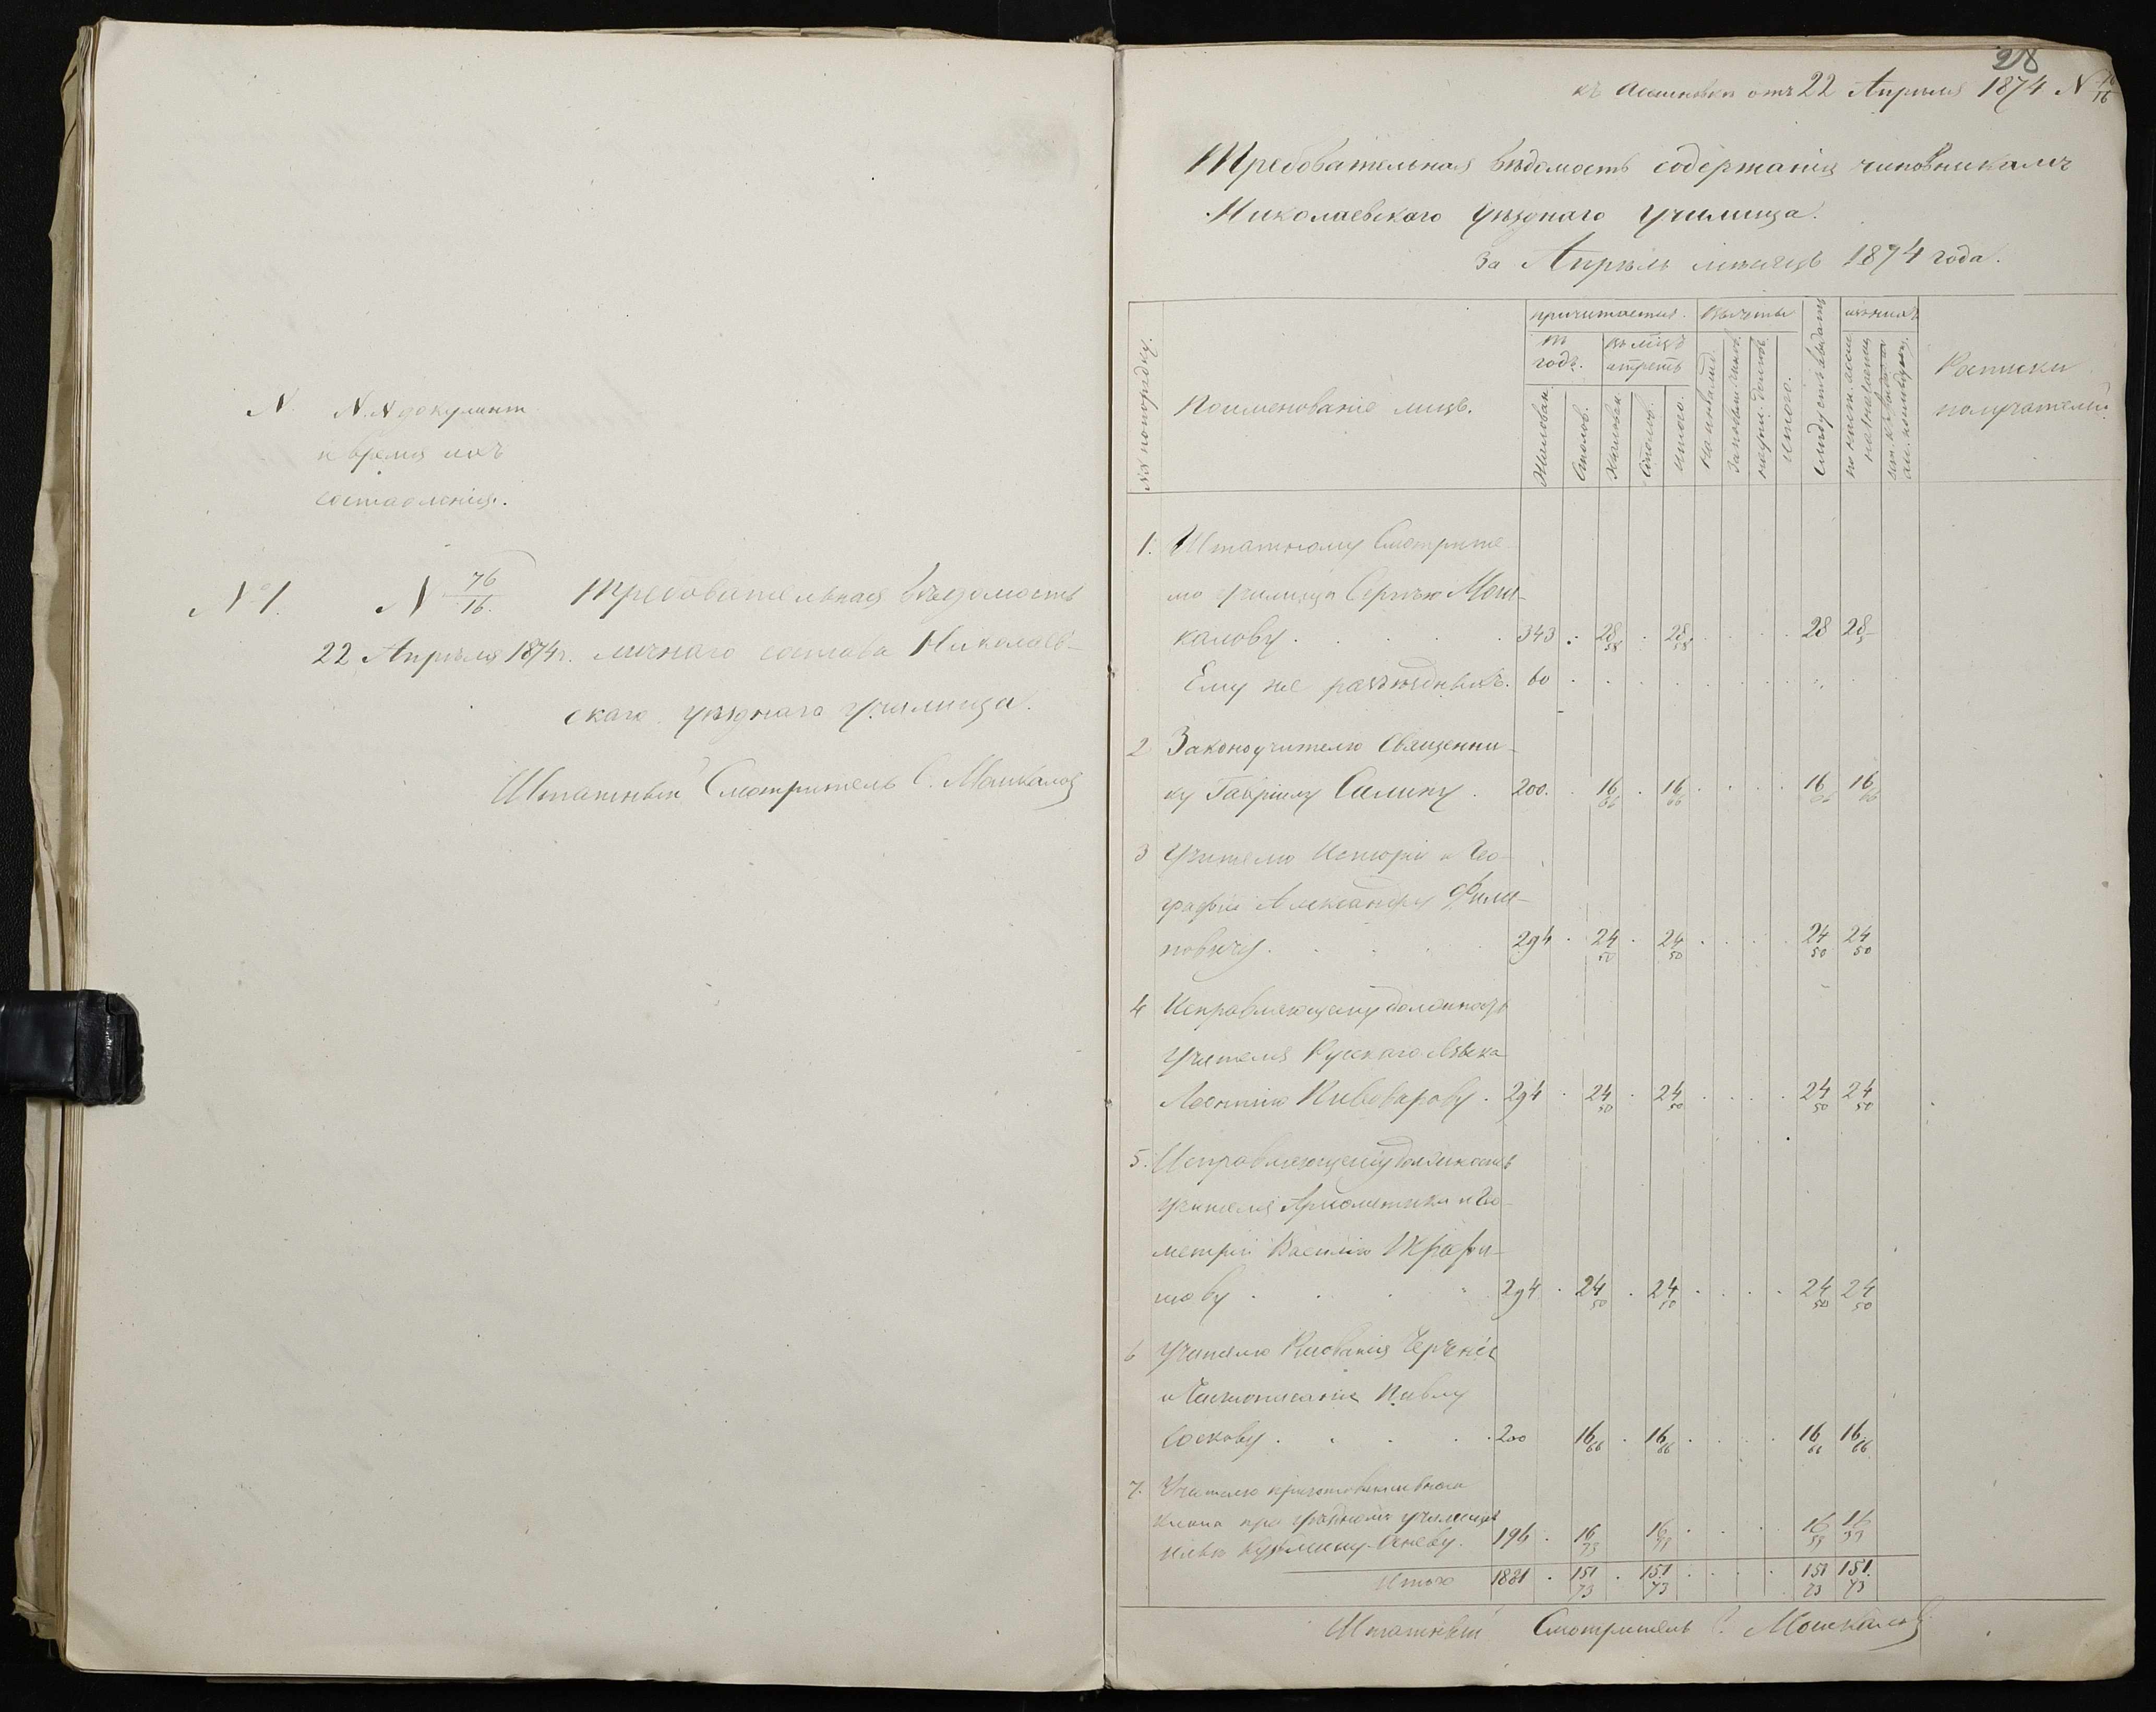 N. N.N документ
и время ихъ
составленія.
№1. N 76/16. Требовательная вѣдомость
22 Апрѣля 1874 г. личнаго состава Николаев-
скаго уѣзднаго училища.
Штатный Смотритель С. Мошкаловъ
218
къ ассигновкѣ отъ 22 Апрѣля 1874 N 76/16
Требовательная вѣдомость содержанія чиновникамъ
Николаевскаго уѣзднаго училища.
За Апрѣль мѣсяцъ 1874 года.
№№ по порядку.
Поименованіе лицъ.
причитается.
въ годъ.
Жалован.
Столов.
въ мѣсяцъ
Жалован.
Столов.
итого.
Вычеты
на инвалид.
итого.
Слѣдуетъ выдать
Росписки
получателей.
1. Штатному Смотрите-
лю училища Сергѣю Мош-
калову . . . . 343 . 28 58 . 28 58 . . . . 28 28
Ему же разъѣздныхъ. 60 . . . . . . . .
2 Законоучителю Священни-
ку Гавріилу Салину . 200. . 16 66 . 16 66 . . . . 16 66 16 66
3 Учителю Исторіи и Гео-
графіи Александру Фили-
повичу . . . 294 . 24 50 . 24 50 . . . . 24 50 24 50
4 Исправляющему должность
Учителя Русскаго Языка
Леонтію Пивоварову . 294 . 24 50 . 24 50 . . . . 24 50 24 50
5. Исправляющему должность
учителя Ариѳметики и Гео-
метріи Василію
294 . 24 50 . 24 50 . . . . 24 50 24 50
6 Учителю Рисованія Черченія
и Чистописанія Павлу
Соскову . . . . 200 16 66 . 16 66 . . . . 16 66 16 66
7. Учителю приготовительнаго
класса при уѣздномъ училищѣ
196 . 16 . 16 . . . . 16 16
Итого 1881 . 151 73 . 151 73 . . . . 151 73 151 73
Штатный Смотритель С. Мошкаловъ